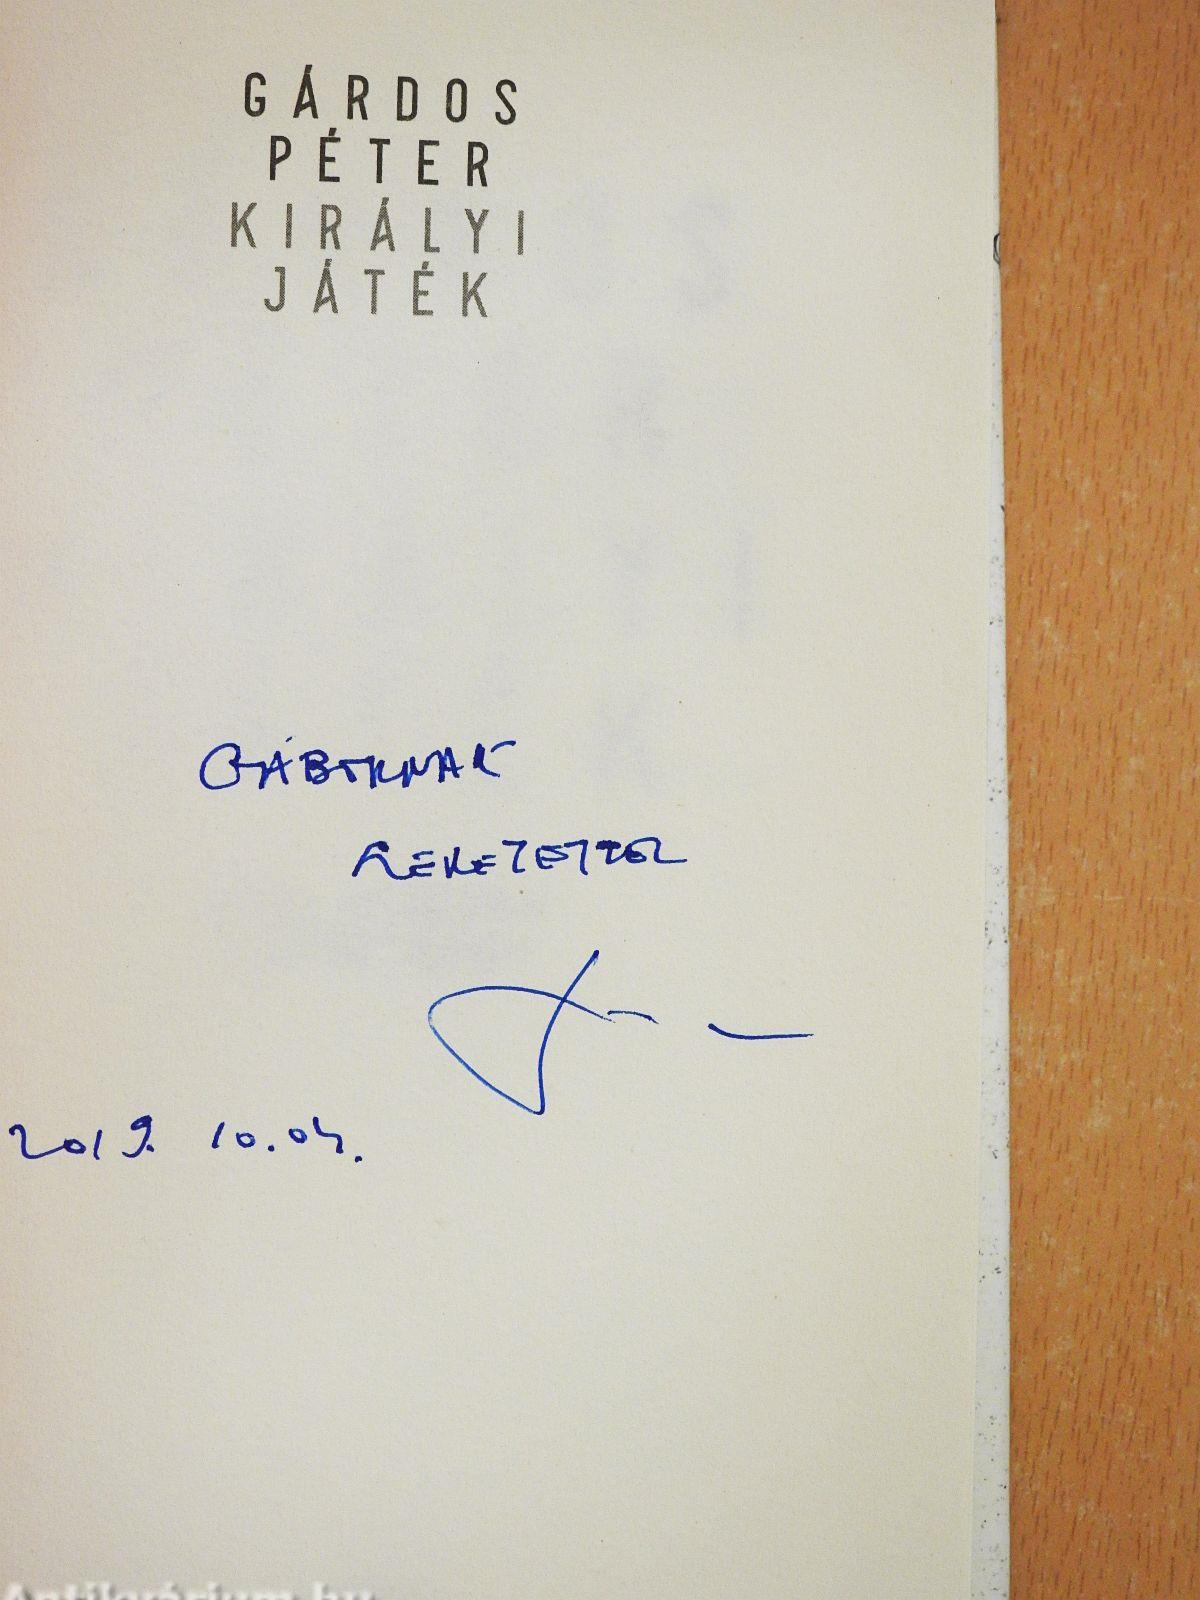 GÁRDOS
PÉTER
KIRÁLYI
JÁTÉK
GÁBORNAK
SZERETETTEL
2019. 10.04.
Antikvárium.hu